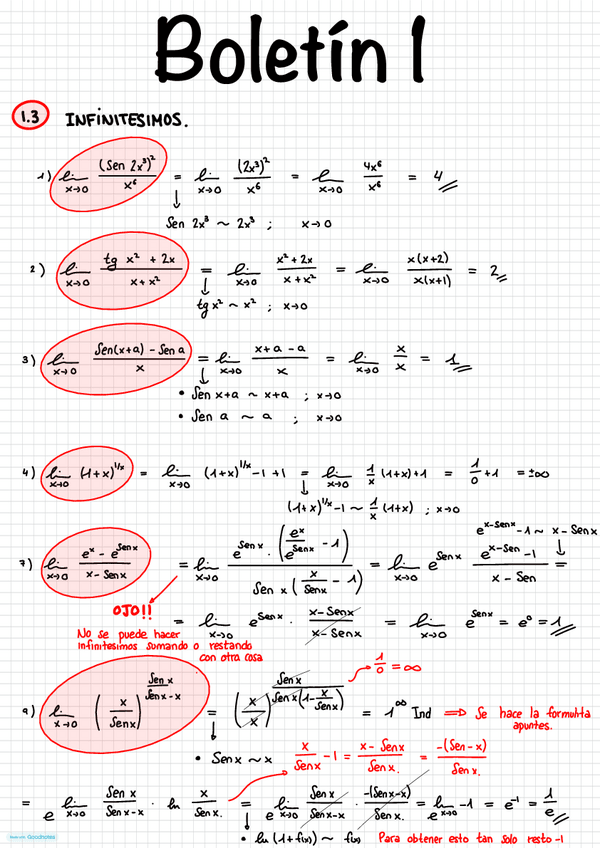 Boletín 1
1.3 INFINITESIMOS.
1) lim x→0 (Sen 2x³)² / x⁶ = lim x→0 (2x³)² / x⁶ = lim x→0 4x⁶ / x⁶ = 4
Sen 2x³ ~ 2x³ ; x→0
2) lim x→0 tg x² + 2x / x + x² = lim x→0 x² + 2x / x + x² = lim x→0 x(x+2) / x(x+1) = 2
tg x² ~ x² ; x→0
3) lim x→0 Sen(x+a) - Sen a / x = lim x→0 x+a - a / x = lim x→0 x / x = 1
• Sen x+a ~ x+a ; x→0
• Sen a ~ a ; x→0
4) lim x→0 (1+x)^(1/x) = lim x→0 (1+x)^(1/x) -1 +1 = lim x→0 1/x (1+x)+1 = 1/0 +1 = ±∞
(1+x)^(1/x) -1 ~ 1/x (1+x) ; x→0
e^(x-Senx) -1 ~ x - Senx
7) lim x→0 e^x - e^(Senx) / x - Senx = lim x→0 e^(Senx) · (e^x / e^(Senx) - 1) / Sen x (x / Senx - 1) = lim x→0 e^(Senx) e^(x-Sen) -1 / x - Sen =
OJO!!
= lim x→0 e^(Senx) · x-Senx / x-Senx = lim x→0 e^(Senx) = e⁰ = 1
No se puede hacer
infinitesimos sumando o restando
con otra cosa
1/0 = ∞
9) lim x→0 (x / Senx)^(Senx / Senx-x) = (x / x)^(Sen x / Senx(1 - x/Senx)) = 1^∞ Ind ⇒ Se hace la formulita
apuntes.
• Senx ~ x
x / Senx - 1 = x - Senx / Senx. = -(Sen-x) / Senx.
= e^(lim x→0 Sen x / Senx-x · ln x / Senx.) = e^(lim x→0 Senx / Senx-x · -(Senx-x) / Senx.) = e^(lim x→0 -1) = e⁻¹ = 1/e
• ln (1+f(x)) ~ f(x) Para obtener esto tan solo resto -1
Made with Goodnotes